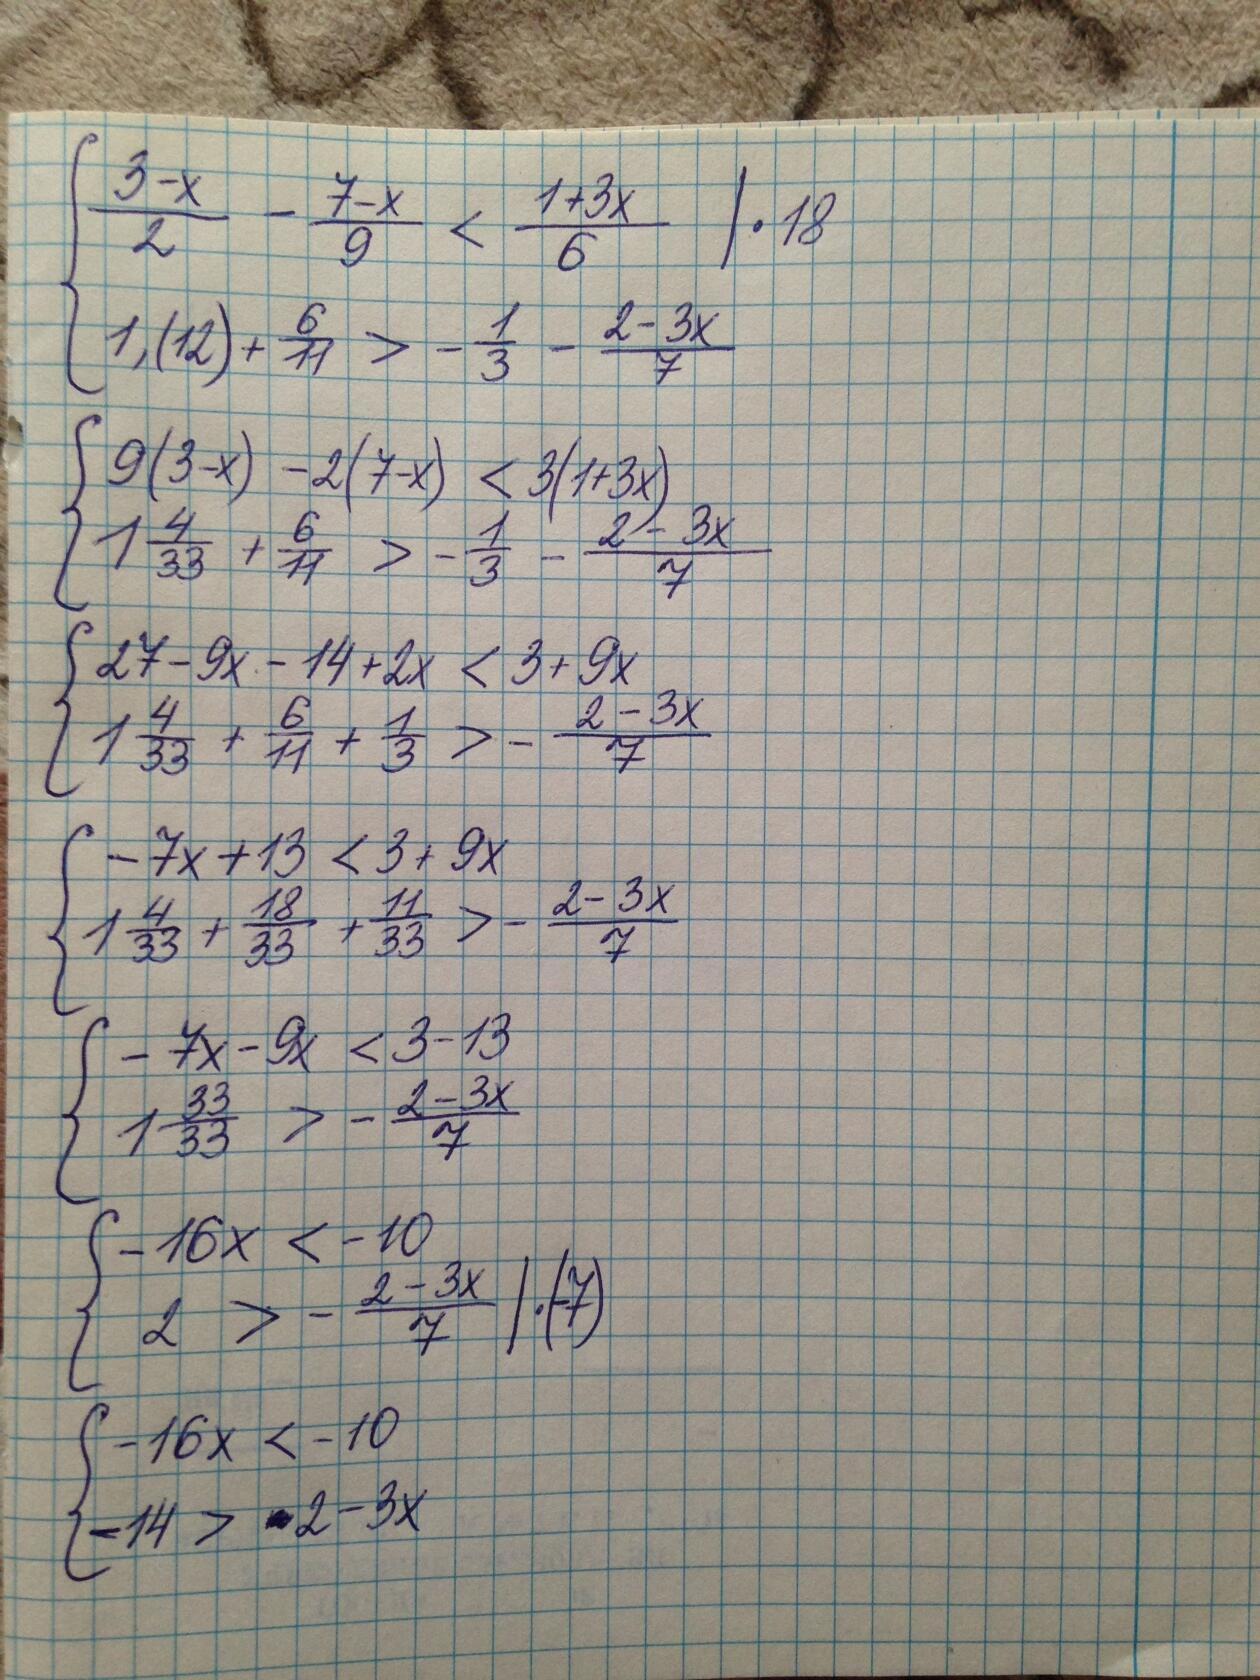 { (3-x)/2 - (7-x)/9 < (1+3x)/6 | · 18
1,(12) + 6/11 > - 1/3 - (2-3x)/7
{ 9(3-x) - 2(7-x) < 3(1+3x)
1 4/33 + 6/11 > - 1/3 - (2-3x)/7
{ 27 - 9x - 14 + 2x < 3 + 9x
1 4/33 + 6/11 + 1/3 > - (2-3x)/7
{ -7x + 13 < 3 + 9x
1 4/33 + 18/33 + 11/33 > - (2-3x)/7
{ -7x - 9x < 3 - 13
1 33/33 > - (2-3x)/7
{ -16x < -10
2 > - (2-3x)/7 | · (-7)
{ -16x < -10
-14 > 2 - 3x